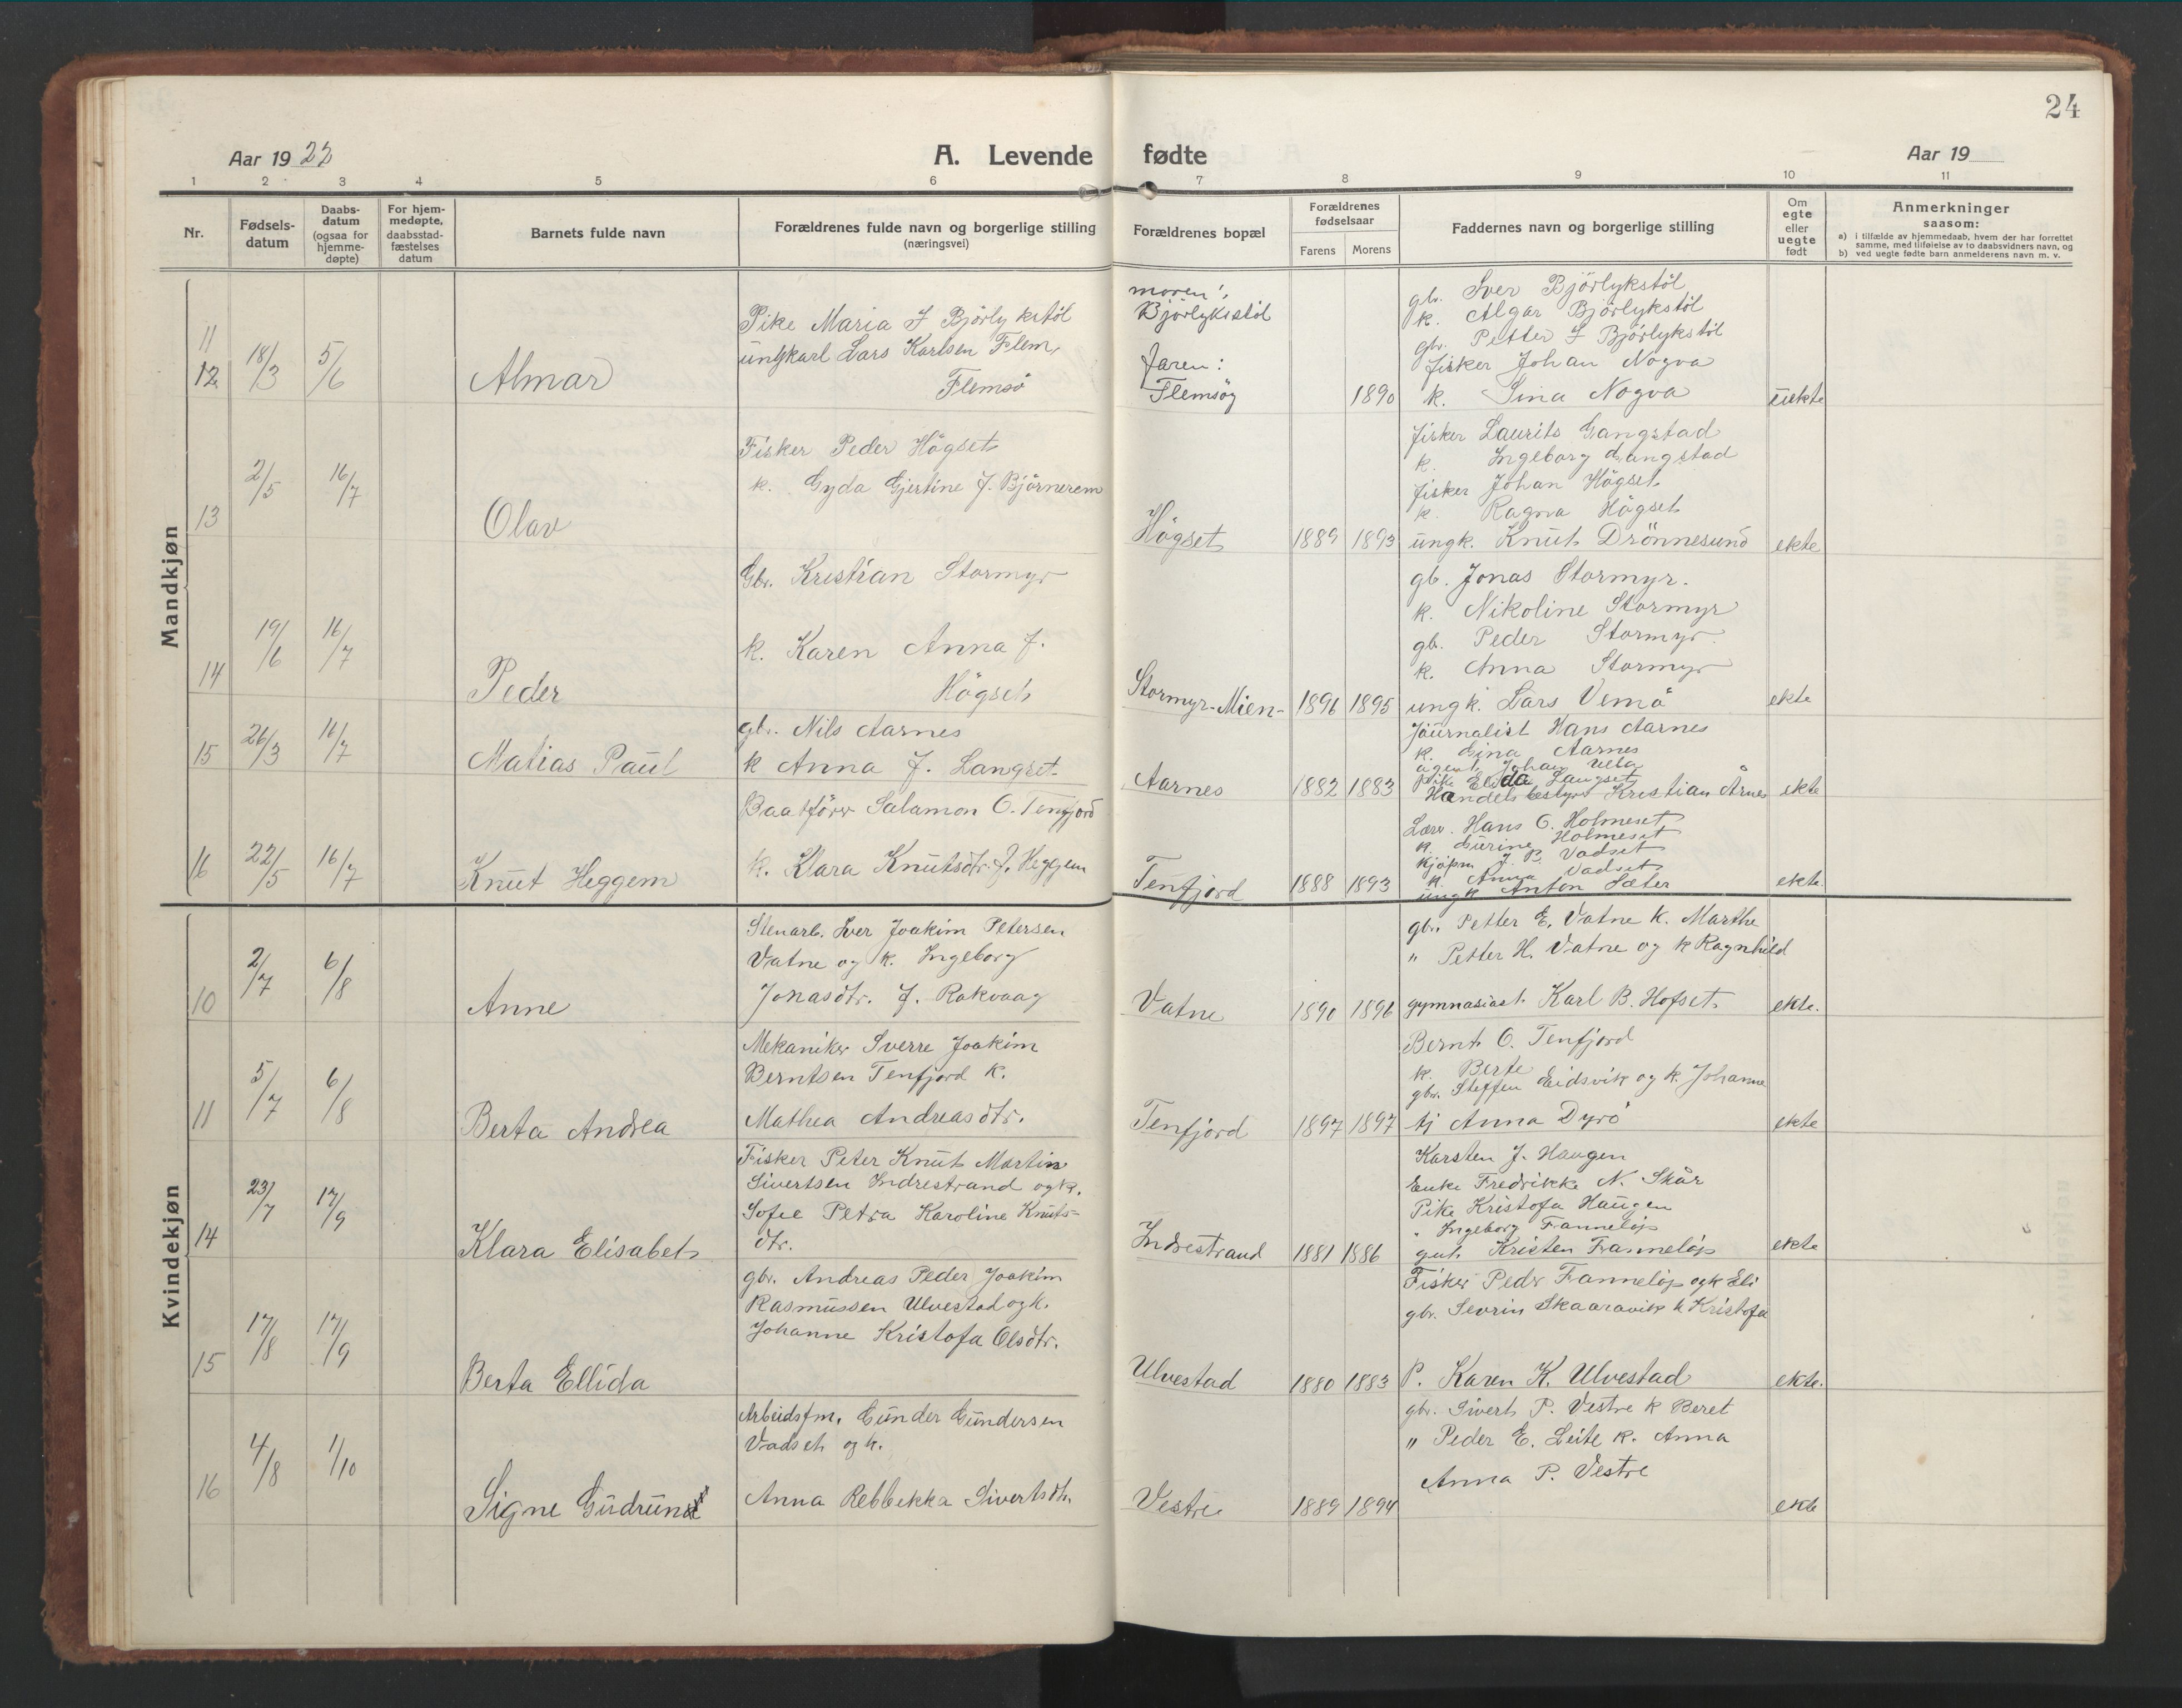 24
Aar 19 22
A. Levende fødte
Aar 19
1 2 3 4 5 6 7 8 9 10 11
Nr.
Fødsels-
datum
Daabs-
datum
(ogsaa for
hjemme-
døpte)
For hjem-
medøpte,
daabsstad-
fæstelses
datum
Barnets fulde navn
Forældrenes fulde navn og borgerlige stilling
(næringsvei)
Forældrenes bopæl
Forældrenes
fødselsaar
Farens Morens
Faddernes navn og borgerlige stilling
Om
egte
eller
uegte
født
Anmerkninger
saasom:
a) i tilfælde av hjemmedaab, hvem der har forrettet
samme, med tilføielse av to daabsvidners navn, og
b) ved uegte fødte barn anmelderens navn m. v.
Mandkjøn
11
12 18/3 5/6 Almar
Pike Maria I Björlykstöl
ungkarl Lars Karlsen Flem,
Flemsö
moren:
Björlykstöl
Faren:
Flemsöy
1890
gbr. Iver Björlykstöl
k. Algar Björlykstöl
gbr. Petter I Björlykstöl
fisker Johan Nogva
k. Sina Nogva
uekte
13 2/5 16/7 Olav
Fisker Peder Högset
k. Gyda Gjertine f. Björnerem
Högset 1889 1893
fisker Laurits Gangstad
k. Ingeborg Gangstad
fisker Johan Högset
k. Ragna Högset
ungk. Knut Drönnesund
ekte
14 19/6 16/7 Peder
Gbr. Kristian Stormyr
k. Karen Anna f.
Högset
Stormyr-Mien- 1896 1895
gb. Jonas Stormyr.
k. Nikoline Stormyr
gb. Peder Stormyr
k. Anna Stormyr
ungk. Lars Vemö
ekte
15 26/3 16/7 Matias Paul
gbr. Nils Aarnes
k Anna f. Langset
Aarnes 1882 1883
Journalist Hans Aarnes
k. Gina Aarnes
agent Johan Ulla
pike Elida Langset
Handelsbestyr Kristian Årnes
ekte
16 22/5 16/7 Knut Heggem
Baatförer Salamon O. Tenfjord
k. Klara Knutsdtr. f. Heggem
Tenfjord 1888 1893
Lærer. Hans O. Holmeset
k. Gurine Holmeset
kjöpm J. P. Vadset
k. Anna Vadset
ungk Anton Sæter
ekte.
Kvindekjøn
10 2/7 6/8 Anne
Stenarb. Iver Joakim Petersen
Vatne og k. Ingeborg
Jonasdtr. f. Rakvaag
Vatne 1890 1896
gbr. Petter E. Vatne k. Marthe
" Petter H. Vatne og k Ragnhild
gymnasiast Karl B. Hofset
ekte.
11 5/7 6/8 Berta Andrea
Mekaniker Sverre Joakim
Berntsen Tenfjord k.
Mathea Andreasdtr.
Tenfjord 1897 1897
Bernt O. Tenfjord
k. Berte
gbr. Steffen Eidsvik og k. Johanne
tj Anna Dyrö
ekte
14 23/7 17/9 Klara Elisabet
Fisker Peter Knut Martin
Sivertsen Indrestrand og k.
Sofie Petra Karoline Knuts-
dtr.
Indrestrand 1881 1886
Karsten J. Haugen
Enke Fredrikke N. Skår
Pike Kristofa Haugen
" Ingeborg Fannelöp
gut Kristen Fannelöp
ekte
15 17/8 17/9 Berta Ellida
gbr. Andreas Peder Joakim
Rasmussen Ulvestad og k.
Johanne Kristofa Olsdtr.
Ulvestad 1880 1883
Fisker Peder Fannelöp og k Eli
gbr. Sevrin Skaaravik k Kristofa
P. Karen K. Ulvestad
ekte.
16 4/8 1/10 Signe Gudrun
Arbeidsfm. Gunder Gundersen
Vadset og k.
Anna Rebbekka Sivertsdtr.
Vestre 1889 1894
gbr. Sivert P. Vestre k Beret
" Peder E. Leite k. Anna
Anna P. Vestre
ekte